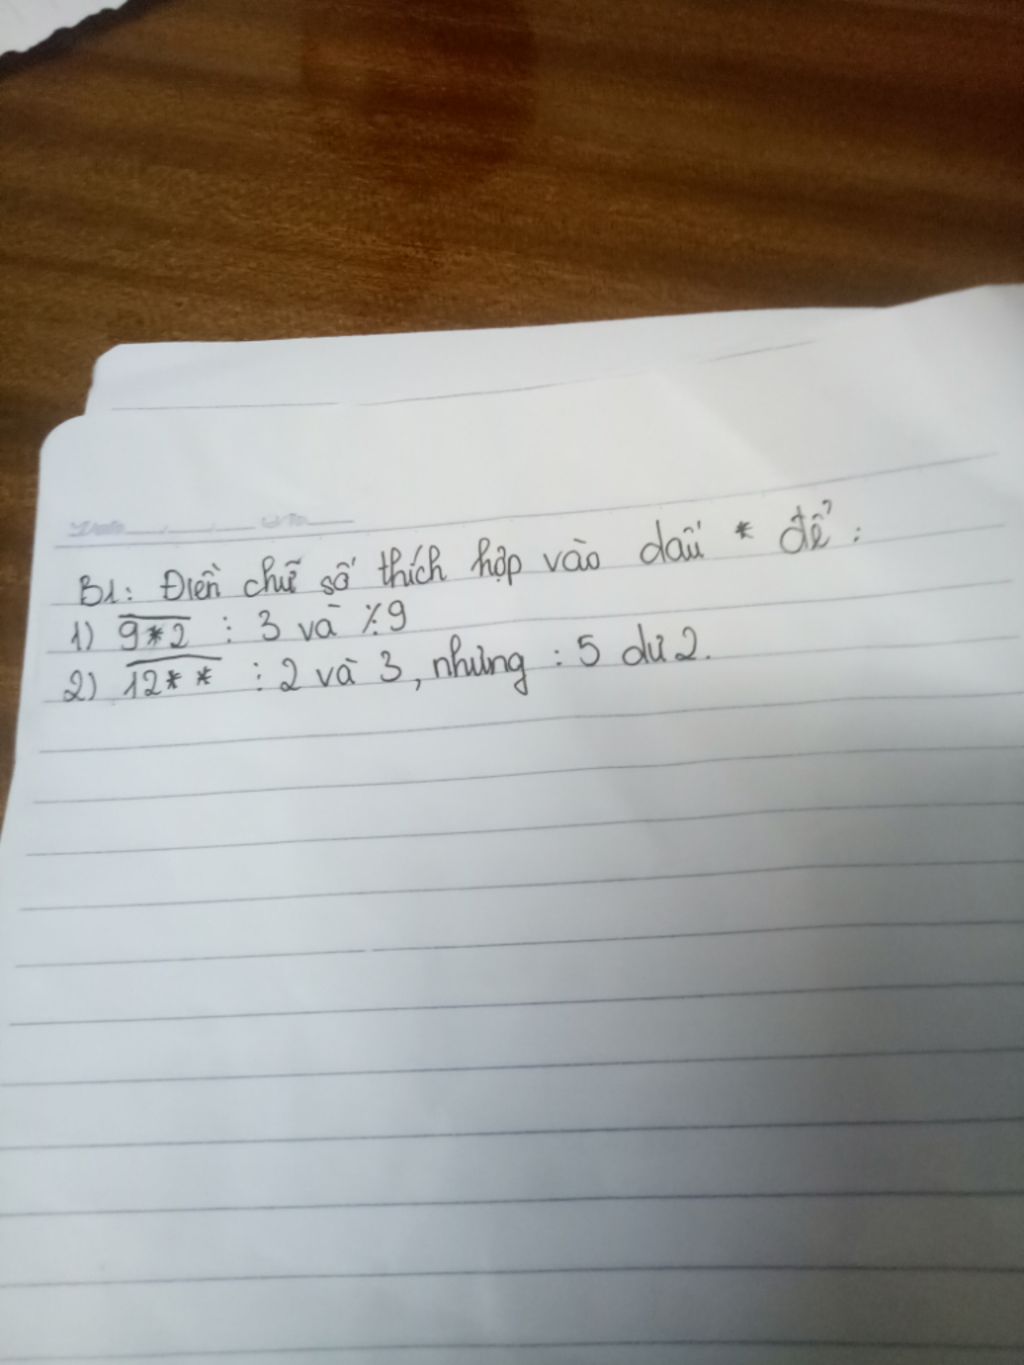 B1: Điền chữ số thích hợp vào dấu * để :
1) 9*2 ⋮ 3 và ⋮̸ 9
2) 12** ⋮ 2 và 3, nhưng : 5 dư 2.